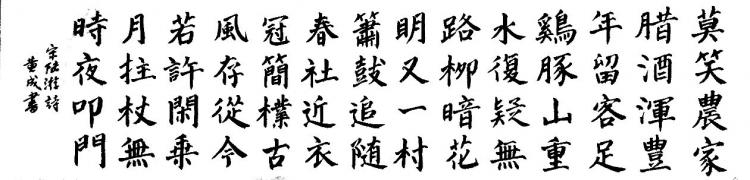 莫笑農家
腊酒渾豐
年留客足
鷄豚山重
水復疑無
路柳暗花
明又一村
簫鼓追随
春社近衣
冠簡樸古
風存從今
若許閑乘
月拄杖無
時夜叩門
宋陸游詩
董成書